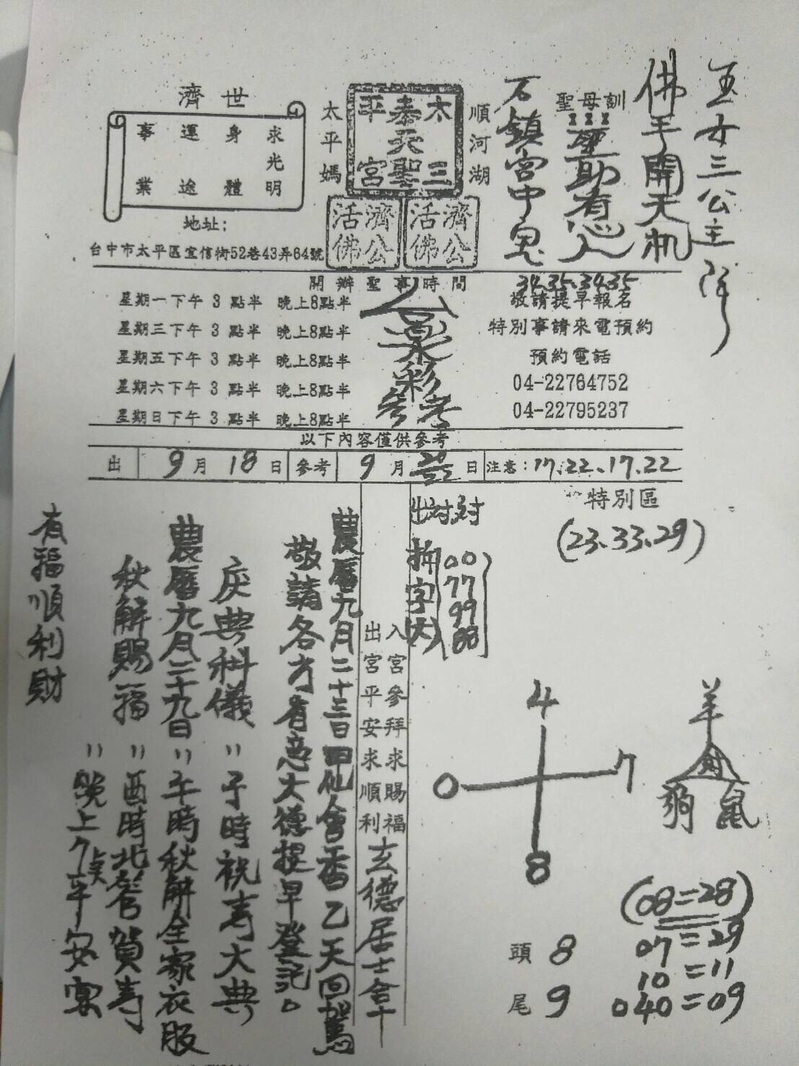 玉女三公主降
佛手開天机
聖母訓
聖助有心人
石鎮宮中鬼
34.35.34.35
濟世
求光明
身體
運途
事業
順河湖
太三
泰天聖
平宮
太平媽
濟公活佛
濟公活佛
地址:
台中市太平區宜信街52巷43弄64號
開辦聖事時間
星期一下午3點半 晚上8點半
星期三下午3點半 晚上8點半
星期五下午3點半 晚上8點半
星期六下午3點半 晚上8點半
星期日下午3點半 晚上8點半
合彩參考
敬請提早報名
特別事請來電預約
預約電話
04-22764752
04-22795237
以下內容僅供參考
出 9月18日 參考 9月 日 注意:17.22.17.22
特別區
(23.33.29)
出對對
00
77
99
88
4
0 7
8
羊
狗 鼠
(08=28)
07=29
10=11
040=09
頭 8
尾 9
入宮參拜求賜福
出宮平安求順利
玄德居士合十
農曆九月二十三日 仙會香乙天回駕
敬請各方有意大德提早登記。
慶典科儀〃子時祝壽大典
農曆九月二十九日〃午時秋解全家衣服
秋解賜福〃酉時北管賀壽
〃晚上7點平安宴
有福順利財